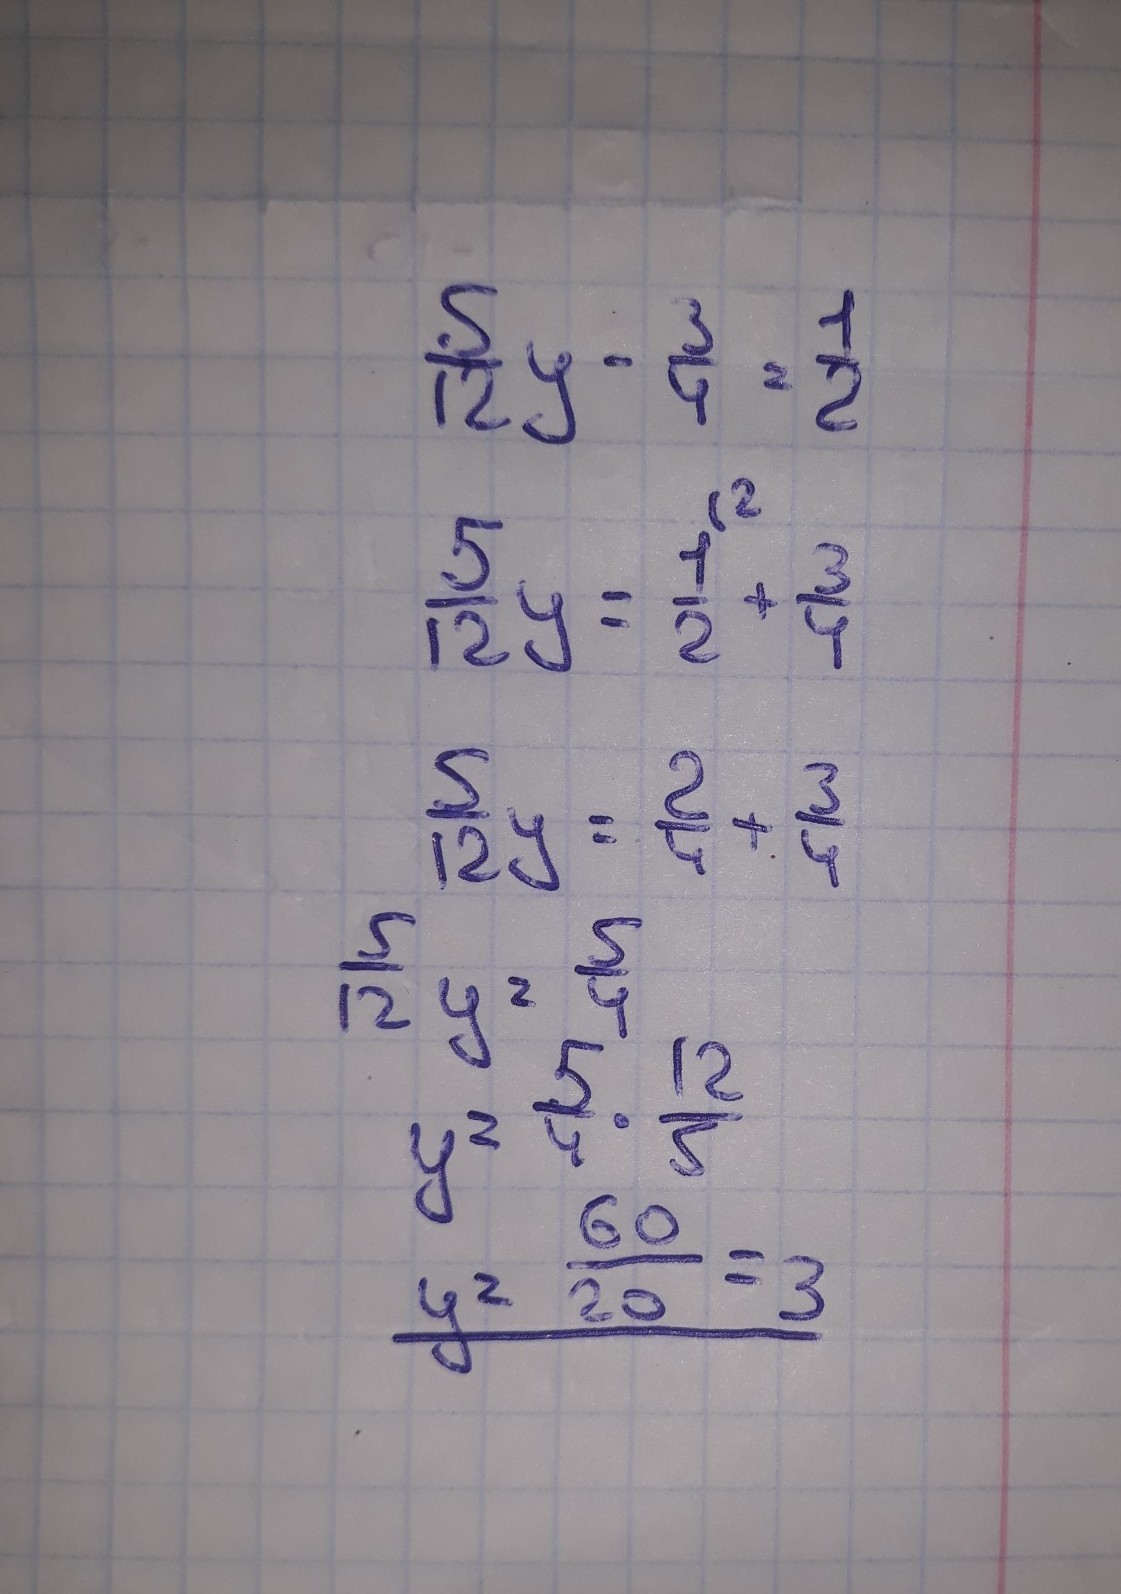 5/12 y - 3/4 = 1/2
5/12 y = 1/2 (2 + 3/4
5/12 y = 2/4 + 3/4
5/12 y = 5/4
y = 5/4 · 12/5
y = 60/20 = 3